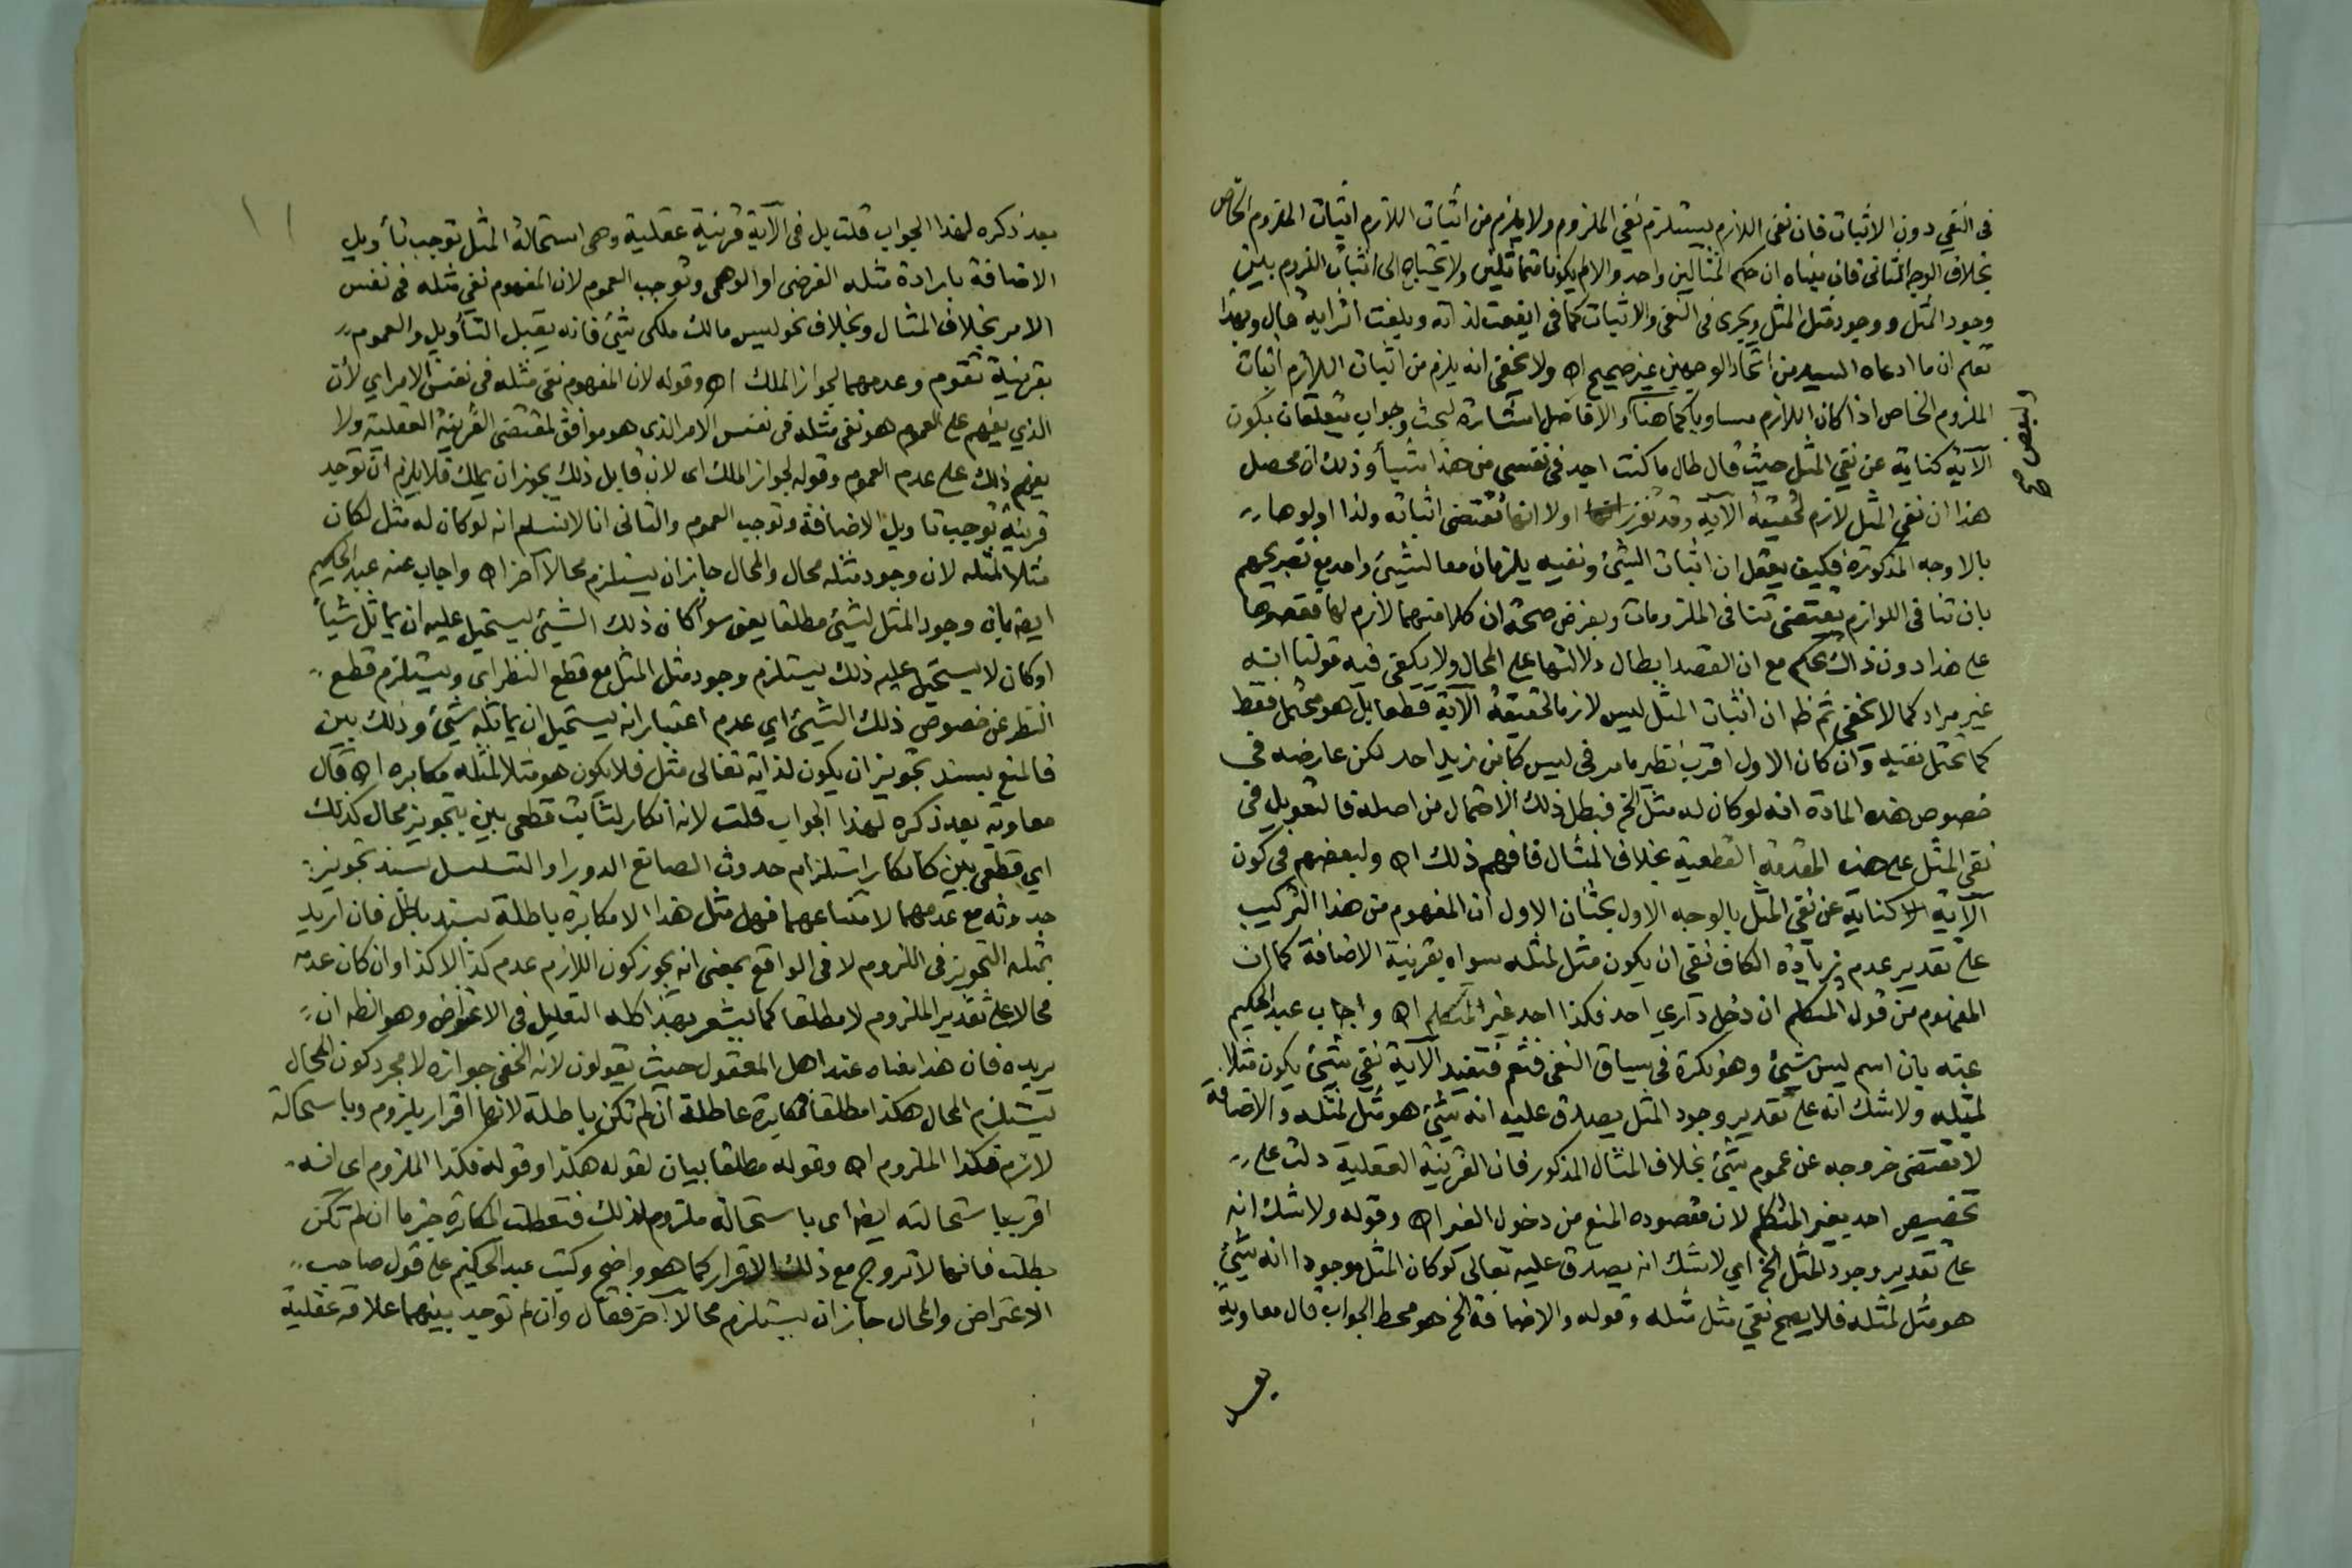 في النفي دون الاثبات فان نفي اللازم يستلزم نفي الملزوم ولا يلزم من اثبات اللازم اثبات الملزوم الخاص
بخلاف الوجه الثاني فان مبناه ان حكم المثالين واحد والا لم يكونا متماثلين ولا يحتاج الى اثبات اللزوم بين
وجود المثل ووجود مثل المثل ويجري في النفي والاثبات كما في ايفعت لداته وبلغت اترابه قال وبهذا
تعلم ان ما ادعاه السيد من اتحاد الوجهين غير صحيح اه ولا يخفى انه يلزم من اثبات اللازم اثبات
الملزوم الخاص اذا كان اللازم مساويا كما هنا ولبعض الافاضل استشارة لبحث وجواب يتعلقان بكون
الآية كناية عن نفي المثل حيث قال طال ما كنت اجد في نفسي من هذا شيأ وذلك ان محصل
هذا ان نفي المثل لازم لحقيقة الآية وقد تقرر اولا انها تقتضي اثباته ولذا اولوها
بالاوجه المذكورة فكيف يعقل ان اثبات الشيئ ونفيه يلزمان معا لشيئ واحد مع تصريحهم
بان تنافي اللوازم يقتضي تنافي الملزومات وبفرض صحة ان كلا منهما لازم لها فقصرها
على هذا دون ذاك تحكم مع ان القصد ابطال دلالتها على المحال ولا يكفي فيه قولنا انه
غير مراد كما لا يخفى ثم ظهر ان اثبات المثل ليس لازما لحقيقة الآية قطعا بل هو محتمل فقط
كما يحتمل نفيه وان كان الاول اقرب نظير ما مر في ليس كابن زيد احد لكن عارضه في
خصوص هذه المادة انه لو كان له مثل الخ فبطل ذلك الاحتمال من اصله فالتعويل في
نفي المثل على هذه المقدمة القطعية بخلاف المثال فافهم ذلك اه ولبعضهم في كون
الآية كناية عن نفي المثل بالوجه الاول بحثان الاول ان المفهوم من هذا التركيب
على تقدير عدم زيادة الكاف نفي ان يكون مثل لمثله سواه بقرينة الاضافة كما ان
المفهوم من قول المتكلم ان دخل داري احد فكذا احد غير المتكلم اه واجاب عبد الحكيم
عنه بان اسم ليس شيئ وهو نكرة في سياق النفي فتعم فتفيد الآية نفي شيئ يكون مثلا
لمثله ولا شك انه على تقدير وجود المثل يصدق عليه انه شيئ هو مثل لمثله والاضافة
لا تقتضي خروجه عن عموم شيئ بخلاف المثال المذكور فان القرينة العقلية دلت على
تخصيص احد بغير المتكلم لان مقصوده المنع من دخول الغير اه وقوله ولا شك انه
على تقدير وجود المثل الخ اي لا شك انه يصدق عليه تعالى لو كان المثل موجودا انه شيئ
هو مثل لمثله فلا يصح نفي مثل مثله وقوله والاضافة الخ هو محط الجواب قال معاوية
بعد
بعد ذكره لهذا الجواب قلت بل في الآية قرينة عقلية وهي استحالة المثل توجب تأويل
الاضافة بارادة مثله الفرضي او الوهمي وتوجب العموم لان المفهوم نفي مثله في نفس
الامر بخلاف المثال وبخلاف نحو ليس مالك ملكي شيئ فانه يقبل التأويل والعموم
بقرينة تقوم وعدمهما لجواز الملك اه وقوله لان المفهوم نفي مثله في نفس الامر اي لأن
الذي يفهم على العموم هو نفي مثله في نفس الامر الذي هو موافق لمقتضى القرينة العقلية ولا
يفهم ذلك على عدم العموم وقوله لجواز الملك اي لان قابل ذلك يجوز ان يملك فلا يلزم ان توجد
قرينة توجب تاويل الاضافة وتوجب العموم والثاني انا لا نسلم انه لو كان له مثل لكان
مثلا لمثله لان وجود مثله محال والمحال جاز ان يستلزم محالا آخر اه واجاب عنه عبد الحكيم
ايضا بان وجود المثل لشيئ مطلقا يعني سوأ كان ذلك الشيئ يستحيل عليه ان يماثل شيأ
او كان لا يستحيل عليه ذلك يستلزم وجود مثل المثل مع قطع النظر اي ويستلزم قطع
النظر عن خصوص ذلك الشيئ اي عدم اعتبار انه يستحيل ان يماثله شيئ وذلك بين
فالمنع بسند تجويز ان يكون لذاته تعالى مثل فلا يكون هو مثلا لمثله مكابره اه قال
معاوية بعد ذكره لهذا الجواب قلت لانه انكار لثابت قطعي بين بتجويز محال كذلك
اي قطعي بين كانكار استلزام حدوث الصانع الدور او التسلسل بسند تجويز
حدوثه مع عدمهما لامتناعهما فهل مثل هذا الا مكابرة باطلة بسند باطل فان اريد
بمثله التجويز في اللزوم لا في الواقع بمعنى انه يجوز كون اللازم عدم كذا لا كذا وان كان عدمه
محالا على تقدير الملزوم لا مطلقا كما يشعر بهذا كله التعليل في الاعتراض وهو الظه ان
يريده فان هذا معناه عند اهل المعقول حيث يقولون لانه الخفي جوازه لا مجرد كون المحال
يستلزم المحال هكذا مطلقا فمكابرة عاطلة ان لم تكن باطلة لانها اقرار بلزوم وباستحالة
لازم فكذا الملزوم اه وقوله مطلقا بيان لقوله هكذا وقوله فكذا الملزوم اي انه
اقر باستحالته ايضا اي باستحالة ملزوم لذلك فتعطلت المكابرة جزما ان لم تكن
بطلت فانها لا تروج مع ذلك الاقرار كما هو واضح وكتب عبد الحكيم على قول صاحب
الاعتراض والمحال جاز ان يستلزم محالا آخر فقال وان لم توجد بينهما علاقة عقلية